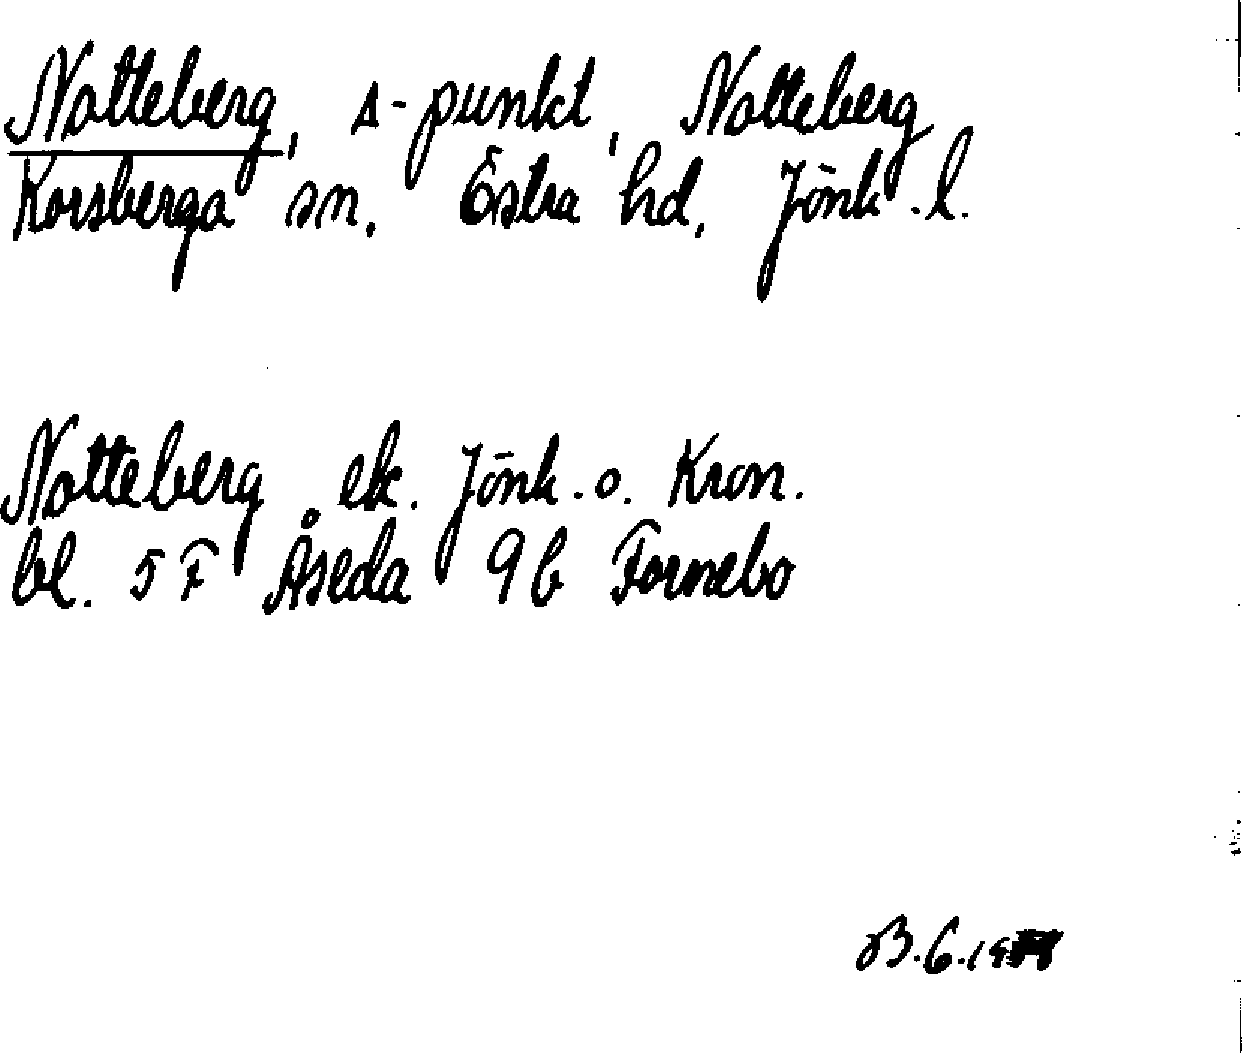 Notteberg, Δ-punkt, Notteberg
Korsberga sn. Östra hd, Jönk.l.
Notteberg ek. Jönk.o. Kron.
bl. 5F Åseda 9b Fornebo
B.G.